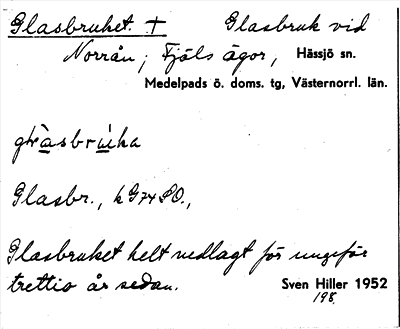 Glasbruket. † Glasbruk vid
Norrån, Fjäls ägor, Hässjö sn.
Medelpads ö. doms. tg, Västernorrl. län.
Glasbr., kG74SO.,
Glasbruket helt nedlagt för ungefär
trettio år sedan.
Sven Hiller 1952
198.